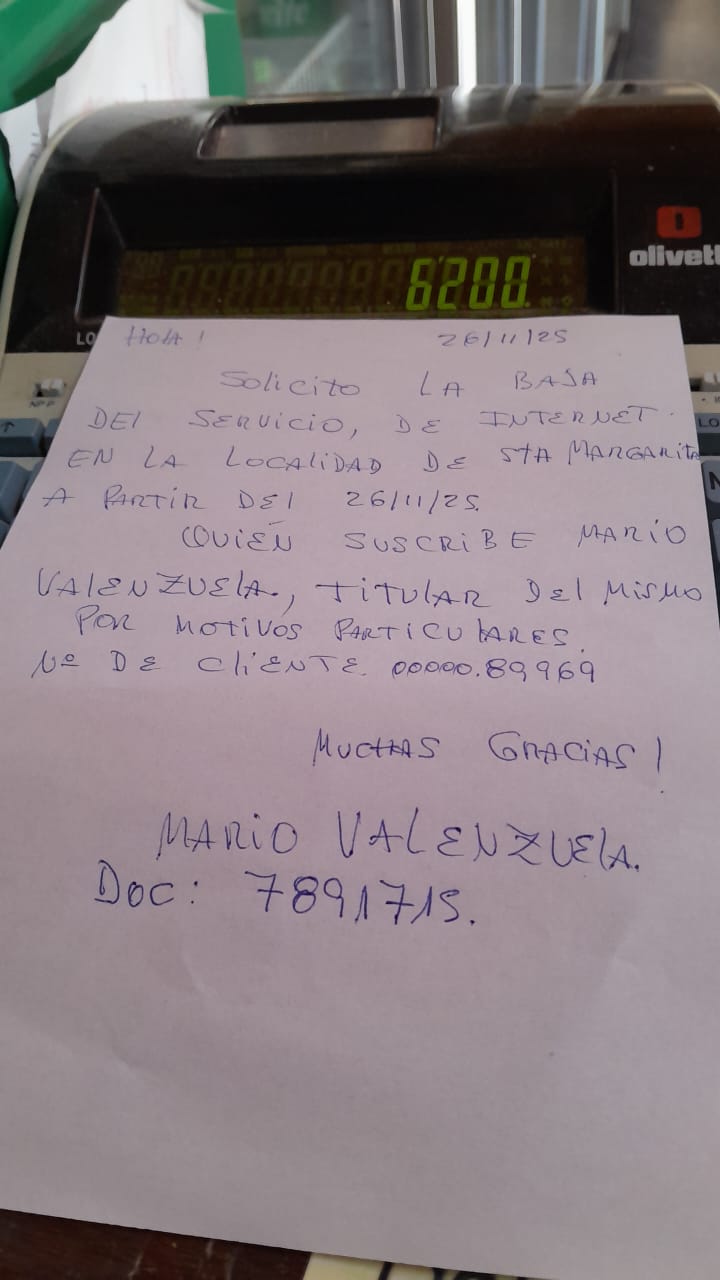 6200
olivett
HOLA !
26/11/25
Solicito LA BAJA
DEl SERVICIO, DE INTERNET.
EN LA LOCALIDAD DE STA MARGARITA
A PARTIR DEl 26/11/25.
QUIEN SUSCRIBE MARIO
VALENZUELA., TITULAR DEl MISMO
POR MOTIVOS PARTICULARES.
Nº DE CliENTE 00000.89969
MUCHAS GRACIAS !
MARIO VALENZUELA.
DOC: 7891715.